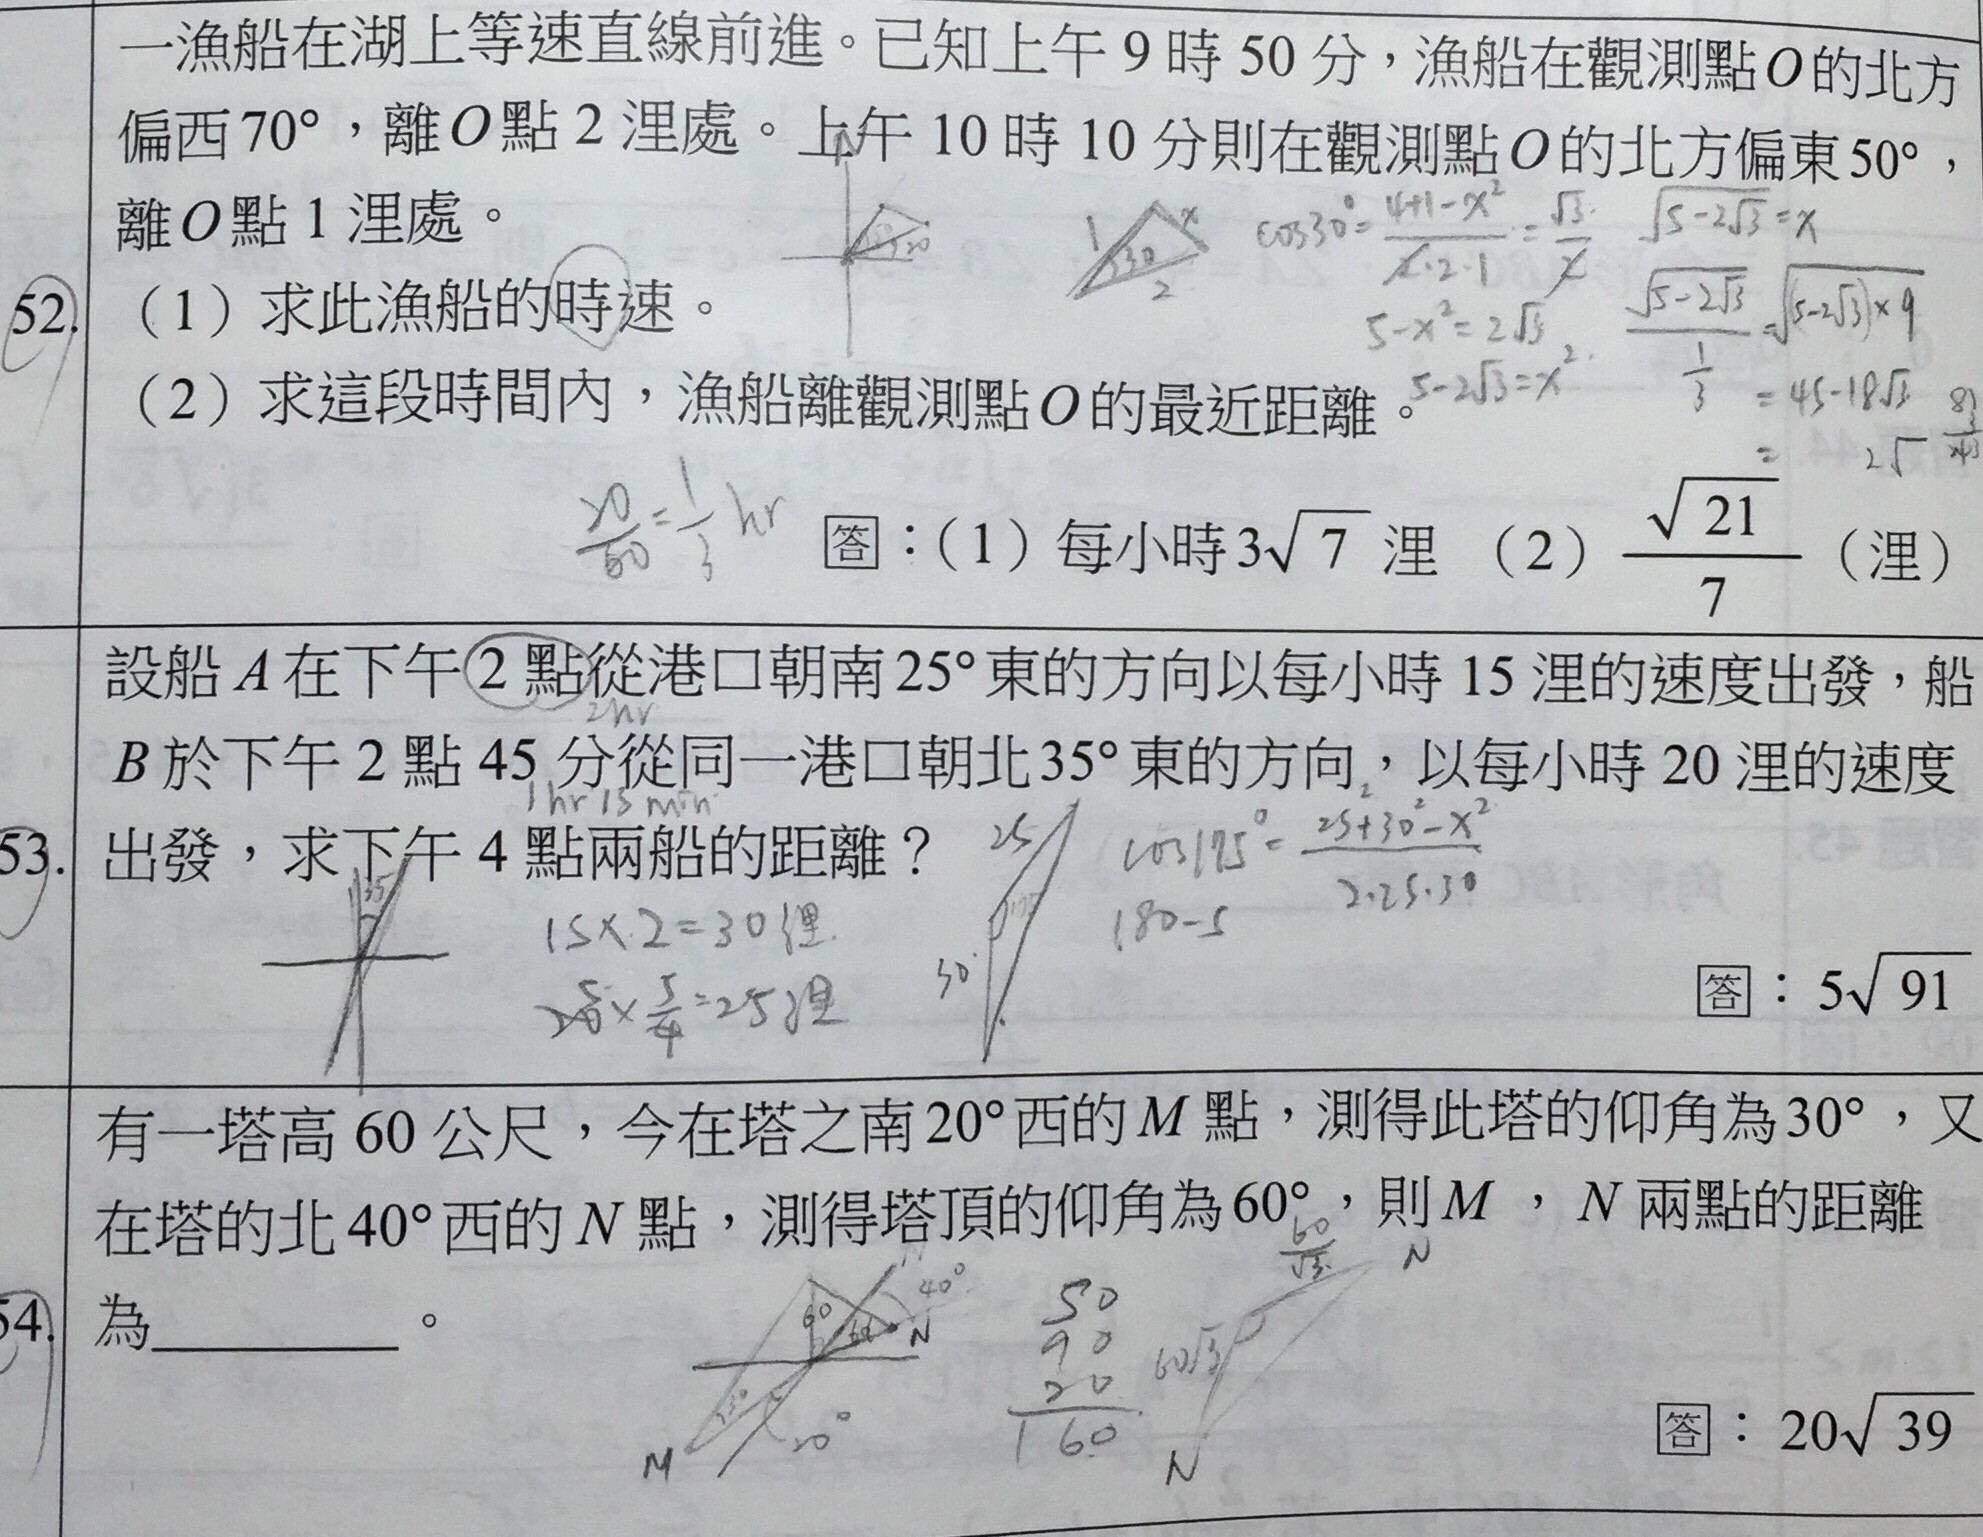 一漁船在湖上等速直線前進。已知上午 9 時 50 分，漁船在觀測點O的北方
偏西70°，離O點 2 浬處。上午 10 時 10 分則在觀測點O的北方偏東50°，
離O點 1 浬處。
52.
（1）求此漁船的時速。
（2）求這段時間內，漁船離觀測點O的最近距離。
N
30
1
x
30
2
cos30°=(4+1-x²)/(2·2·1)=√3/2
√(5-2√3)=x
5-x²=2√3
5-2√3=x²
√(5-2√3)/(1/3)=√((5-2√3)×9)
=45-18√3
20/60=1/3 hr
答：（1）每小時3√7 浬 （2）√21/7（浬）
設船 A 在下午 2 點從港口朝南25°東的方向以每小時 15 浬的速度出發，船
2hr
B 於下午 2 點 45 分從同一港口朝北35°東的方向，以每小時 20 浬的速度
1hr 15 min
53.
出發，求下午 4 點兩船的距離？
35
15×2=30浬
×5/4=25浬
25
30
cos175°=(25²+30²-x²)/(2·25·30)
180-5
答：5√91
有一塔高 60 公尺，今在塔之南20°西的M 點，測得此塔的仰角為30°，又
在塔的北40°西的N 點，測得塔頂的仰角為60°，則M ，N 兩點的距離
54.
為________。
N
40°
60
60
N
20°
M
50
90
20
160
60/√3
N
60√3
N
答：20√39